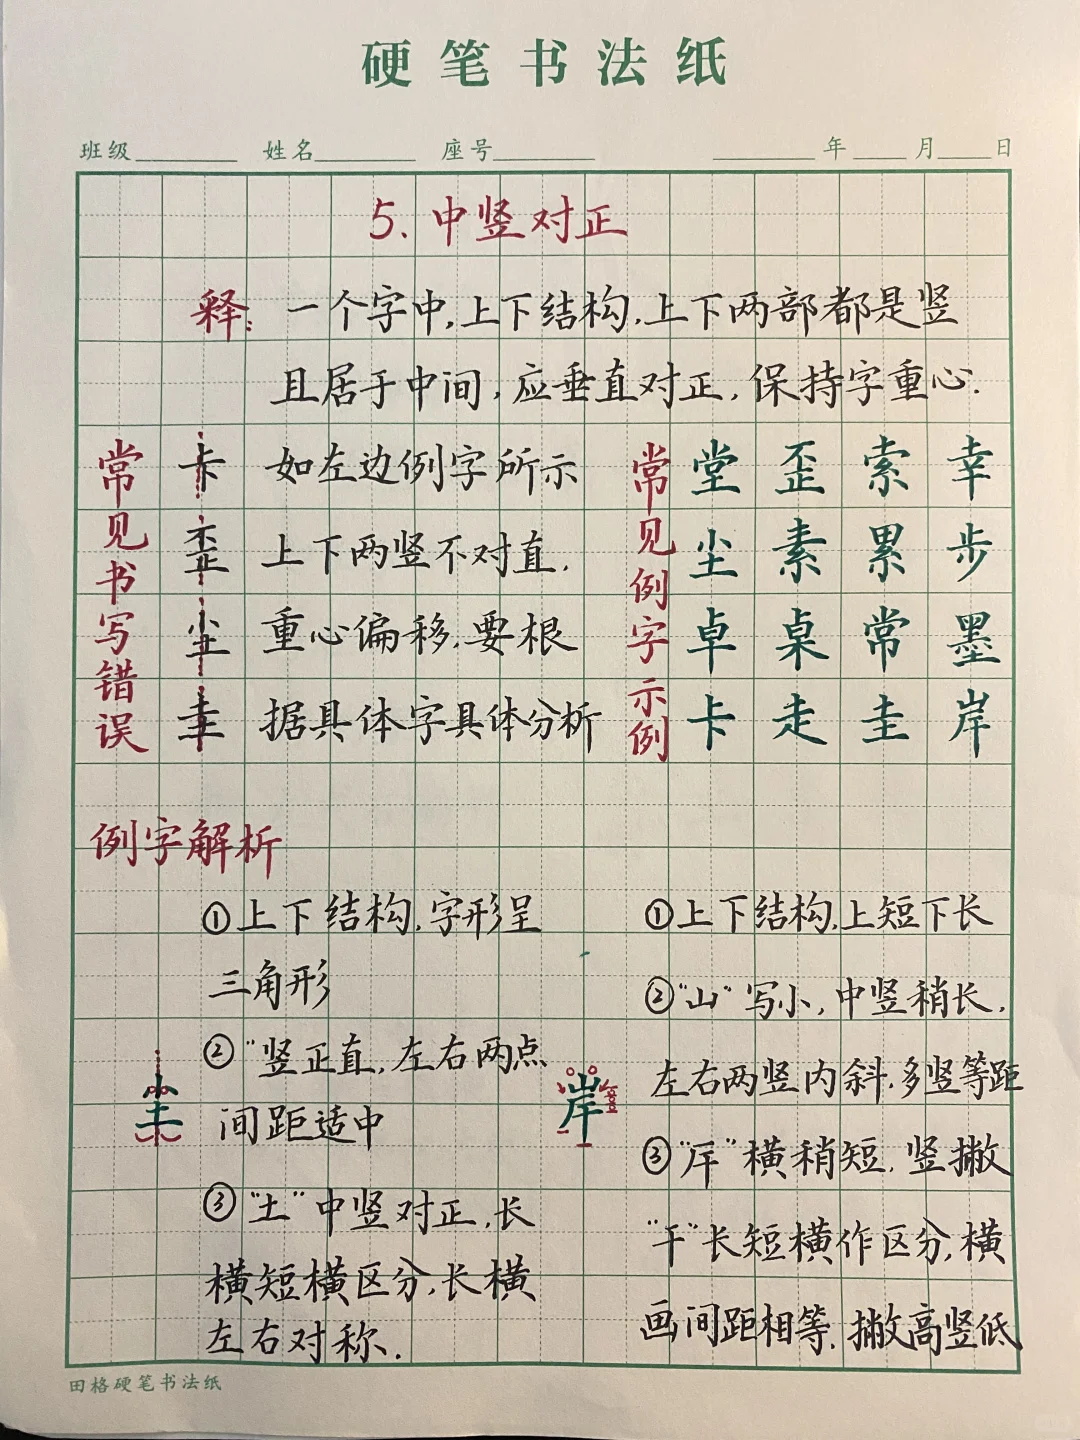 硬笔书法纸
班级 姓名 座号 年 月 日
5. 中竖对正
释: 一个字中,上下结构,上下两部都是竖
且居于中间,应垂直对正,保持字重心.
常见书写错误
卡 如左边例字所示
歪 上下两竖不对直.
尘 重心偏移,要根
圭 据具体字具体分析
常见例字示例
堂 歪 索 幸
尘 素 累 步
卓 桌 常 墨
卡 走 圭 岸
例字解析
尘
①上下结构,字形呈
三角形
②"竖正直,左右两点
间距适中
③"土"中竖对正,长
横短横区分,长横
左右对称.
岸
①上下结构,上短下长
②"山"写小,中竖稍长,
左右两竖内斜,多竖等距
③"厈"横稍短,竖撇
"干"长短横作区分,横
画间距相等,撇高竖低
田格硬笔书法纸